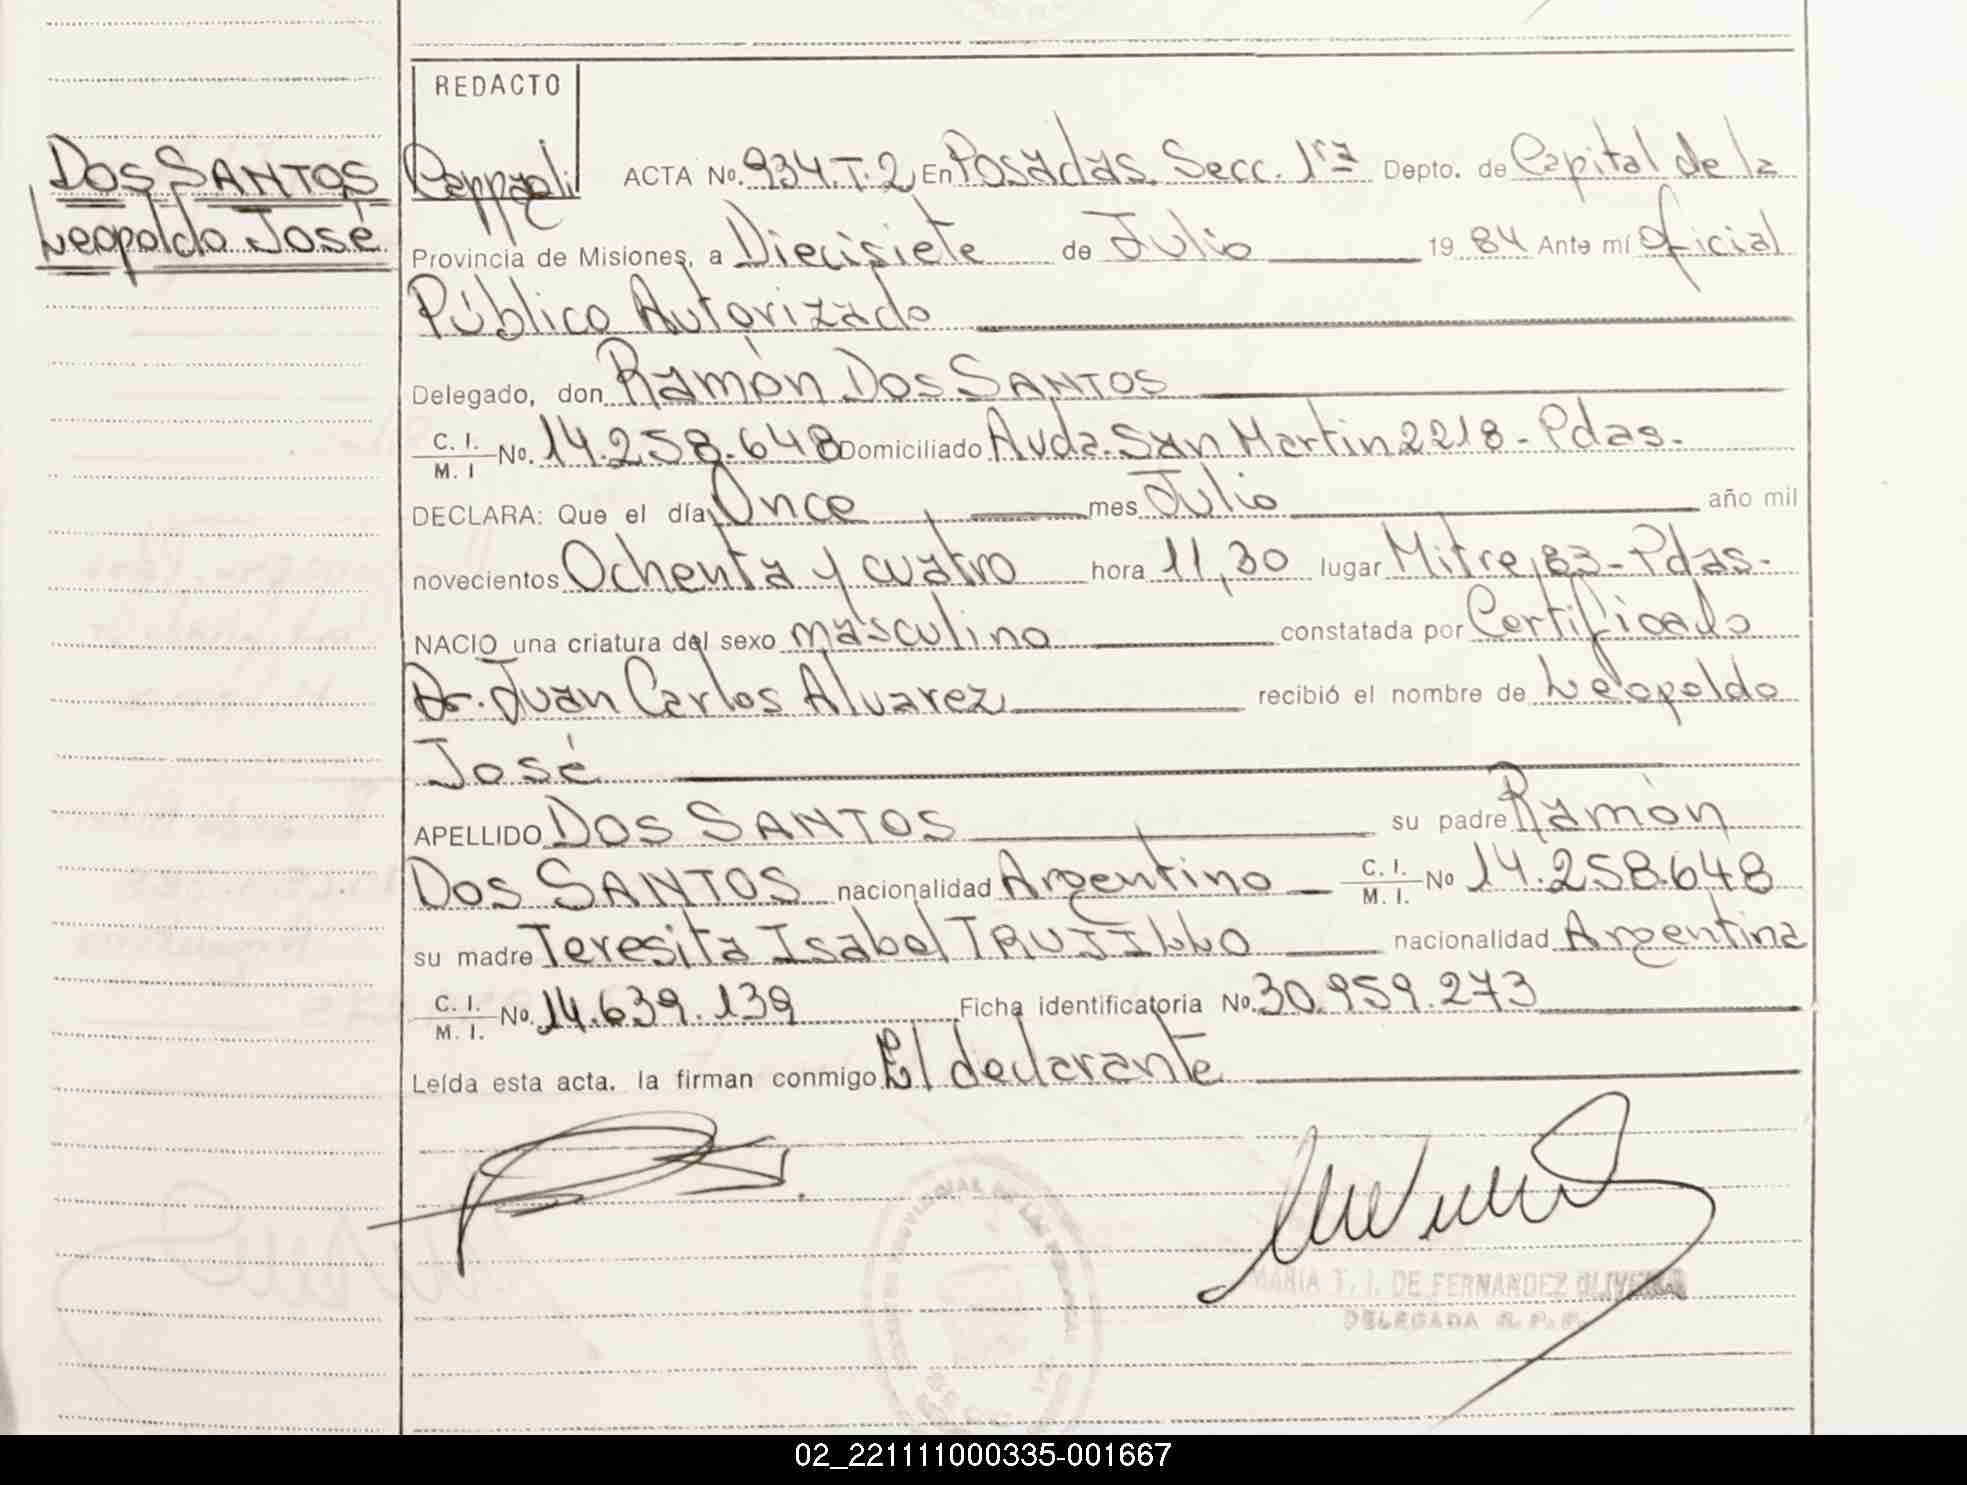 REDACTO
DOS SANTOS
Leopoldo José
ACTA No. 934.T.2 En Posadas. Secc. 1ra Depto. de Capital de la
Provincia de Misiones, a Diecisiete de Julio 1984 Ante mí Oficial
Público Autorizado
Delegado, don Ramón DOS SANTOS
C. I. / M. I No. 14.258.648 Domiciliado Avda. San Martin 2218 - Pdas.
DECLARA: Que el día Once mes Julio año mil
novecientos Ochenta y cuatro hora 11,30 lugar Mitre 83 - Pdas.
NACIO una criatura del sexo masculino constatada por Certificado
Dr. Juan Carlos Alvarez recibió el nombre de Leopoldo
José
APELLIDO DOS SANTOS su padre Ramón
DOS SANTOS nacionalidad Argentino C. I. / M. I. No 14.258.648
su madre Teresita Isabel TRUJILLO nacionalidad Argentina
C. I. / M. I. No. 14.639.139 Ficha identificatoria No. 30.959.273
Leída esta acta. la firman conmigo El declarante
MARIA T. I. DE FERNANDEZ OLIVEIRA
DELEGADA R. P. P.
02_221111000335-001667